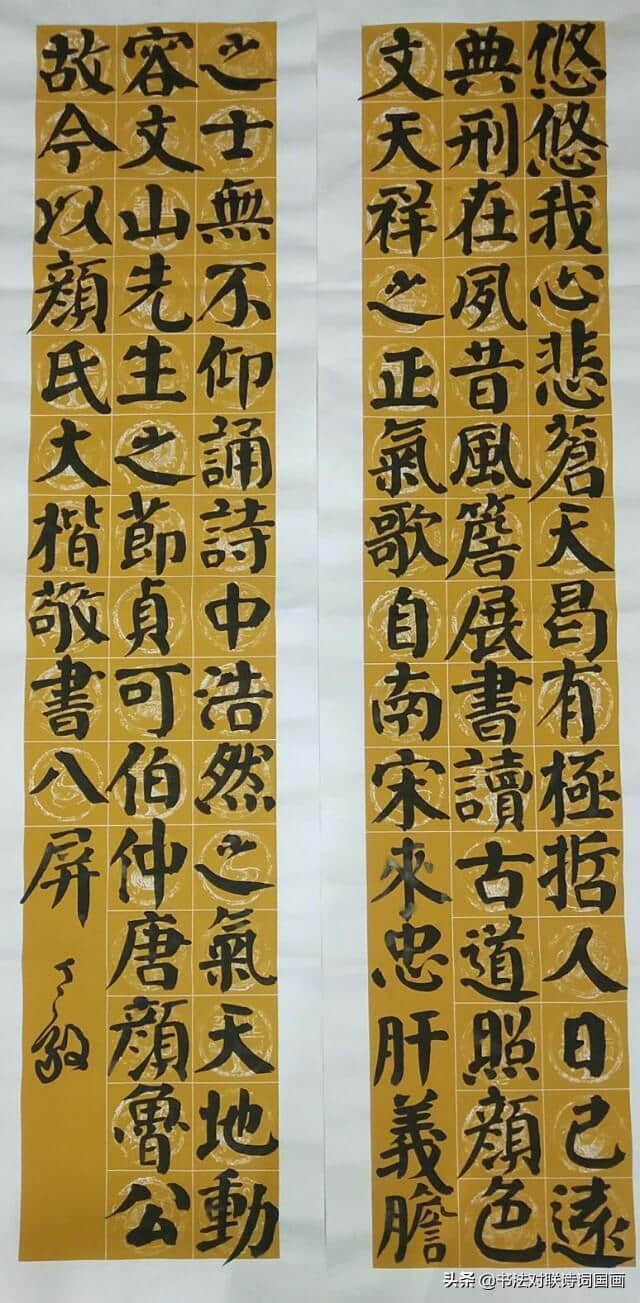 悠悠我心悲蒼天曷有極哲人日已遠
典刑在夙昔風簷展書讀古道照顏色
文天祥之正氣歌自南宋來忠肝義膽
之士無不仰誦詩中浩然之氣天地動
容文山先生之節貞可伯仲唐顏魯公
故今以顏氏大楷敬書八屏
头条 @书法对联诗词国画